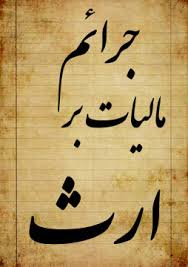 جرائم
مالیات بر
ارث